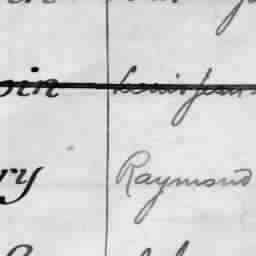 oin Louis Jean
ry Raymond